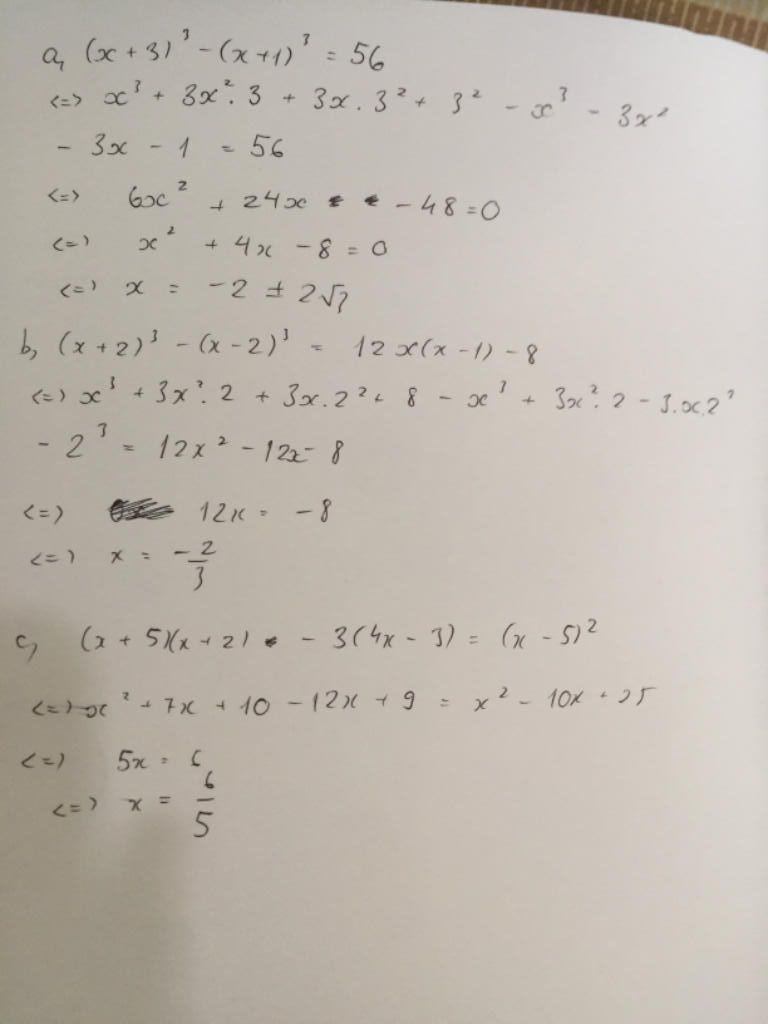 a, (x + 3)³ - (x + 1)³ = 56
<=> x³ + 3x². 3 + 3x . 3² + 3² - x³ - 3x²
- 3x - 1 = 56
<=> 6x² + 24x - 48 = 0
<=> x² + 4x - 8 = 0
<=> x = -2 ± 2√3
b, (x + 2)³ - (x - 2)³ = 12x(x - 1) - 8
<=> x³ + 3x². 2 + 3x. 2² + 8 - x³ + 3x². 2 - 3.x.2²
- 2³ = 12x² - 12x - 8
<=> 12x = -8
<=> x = -2/3
c, (x + 5)(x + 2) - 3(4x - 3) = (x - 5)²
<=> x² + 7x + 10 - 12x + 9 = x² - 10x + 25
<=> 5x = 6
<=> x = 6/5